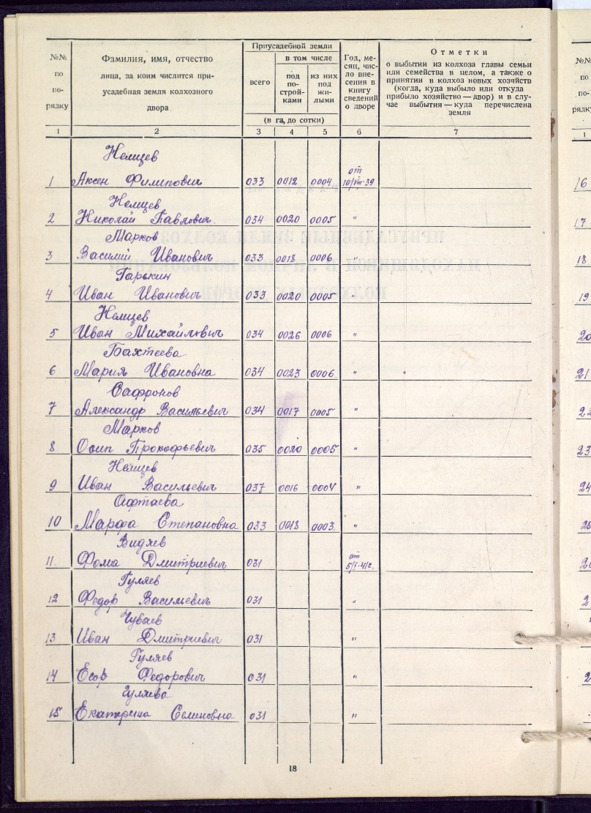 №№ по порядку
Фамилия, имя, отчество
лица, за коим числится при-
усадебная земля колхозного
двора
Приусадебной земли
всего
в том числе
под по-строй-ками
из них под жи-лыми
(в га, до сотки)
Год, ме-
сяц, чис-
ло вне-
сения в
книгу
сведений
о дворе
Отметки
о выбытии из колхоза главы семьи
или семейства в целом, а также о
принятии в колхоз новых хозяйств
(когда, куда выбыло или откуда
прибыло хозяйство — двор) и в слу-
чае выбытия — куда перечислена
земля
1 2 3 4 5 6 7
Немцев
1 Аксен Филипович 033 0012 0004 от 10/VIII-39
Немцев
2 Николай Павлович 034 0020 0005 "
Марков
3 Василий Иванович 033 0018 0006 "
Гарькин
4 Иван Иванович 033 0020 0005 "
Немцев
5 Иван Михайлович 034 0026 0006 "
Бахтеева
6 Мария Ивановна 034 0023 0006 "
Сафронов
7 Александр Васильевич 034 0017 0005 "
Марков
8 Осип Прокофьевич 035 0020 0005 "
Немцев
9 Иван Васильевич 037 0016 0004 "
10 Марфа Степановна 033 0018 0003 "
Видяев
11 Фома Дмитриевич 031 от
Гуляев
12 Федор Васильевич 031 "
Чуваев
13 Иван Дмитриевич 031 "
Гуляев
14 Егор Федорович 031 "
Гуляева
15 Екатерина Семиновна 031 "
18